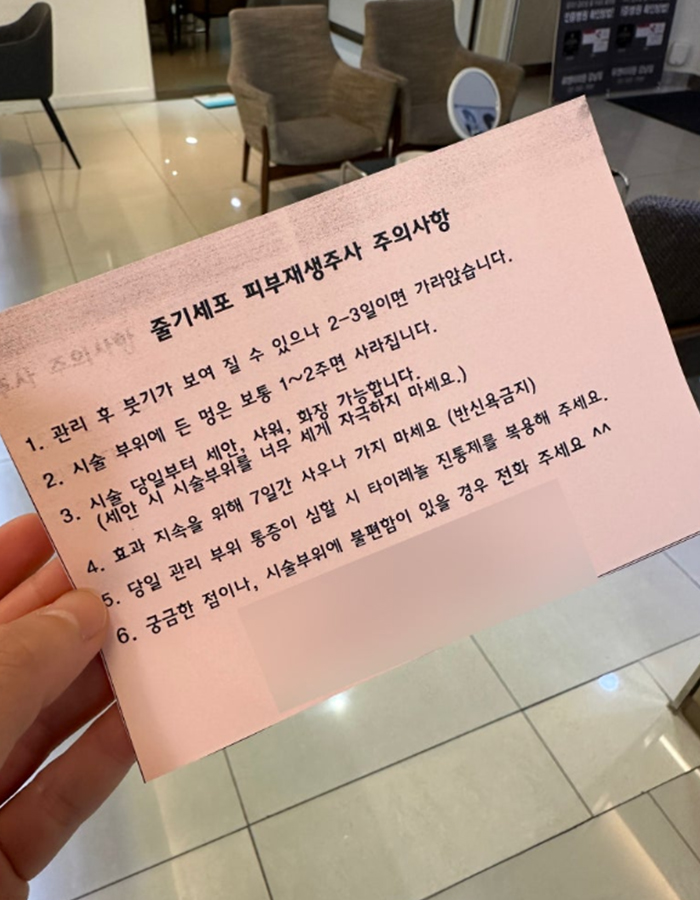 줄기세포 피부재생주사 주의사항
1. 관리 후 붓기가 보여 질 수 있으나 2-3일이면 가라앉습니다.
2. 시술 부위에 든 멍은 보통 1~2주면 사라집니다.
3. 시술 당일부터 세안, 샤워, 화장 가능합니다.
(세안 시 시술부위를 너무 세게 자극하지 마세요.)
4. 효과 지속을 위해 7일간 사우나 가지 마세요 (반신욕금지)
5. 당일 관리 부위 통증이 심할 시 타이레놀 진통제를 복용해 주세요.
6. 궁금한 점이나, 시술부위에 불편함이 있을 경우 전화 주세요 ^^